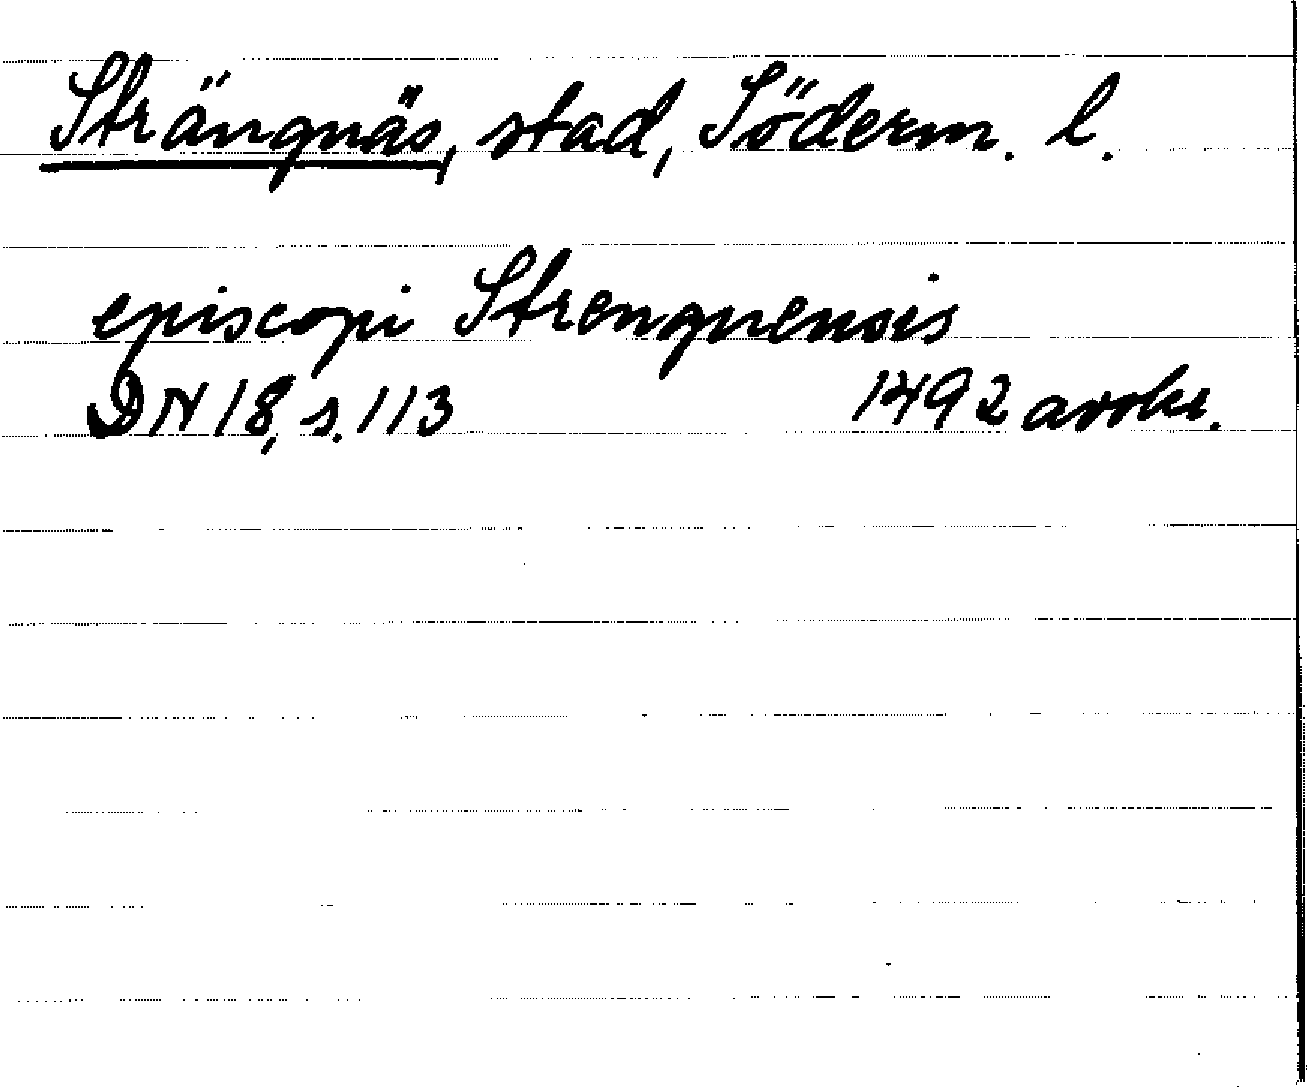 Strängnäs, stad, Söderm. l.
episcopi Strengnensis
DN 18, s. 113 1492 avskr.